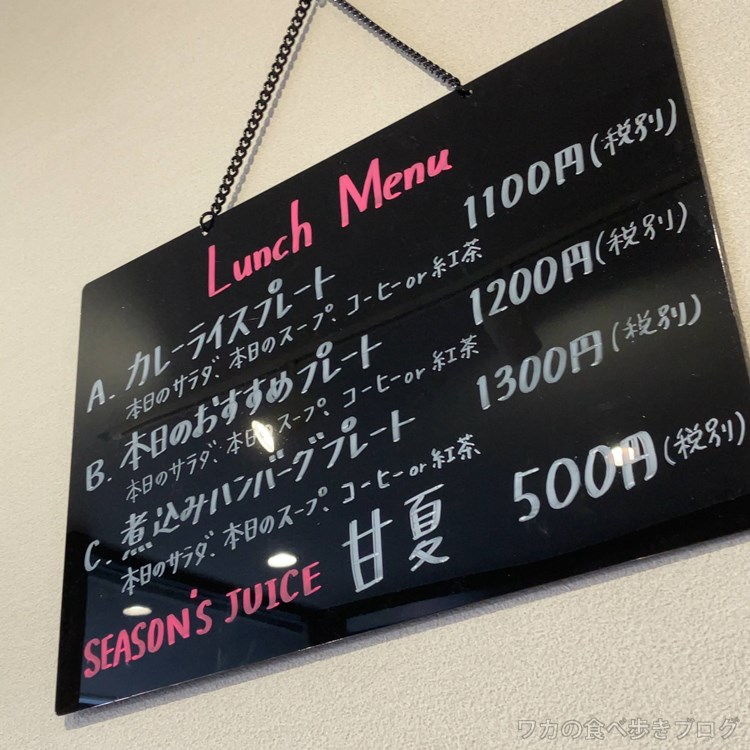 Lunch Menu
A. カレーライスプレート 1100円(税別)
本日のサラダ、本日のスープ、コーヒーor紅茶
B. 本日のおすすめプレート 1200円(税別)
本日のサラダ、本日のスープ、コーヒーor紅茶
C. 煮込みハンバーグプレート 1300円(税別)
本日のサラダ、本日のスープ、コーヒーor紅茶
SEASON'S JUICE 甘夏 500円(税別)
ワカの食べ歩きブログ